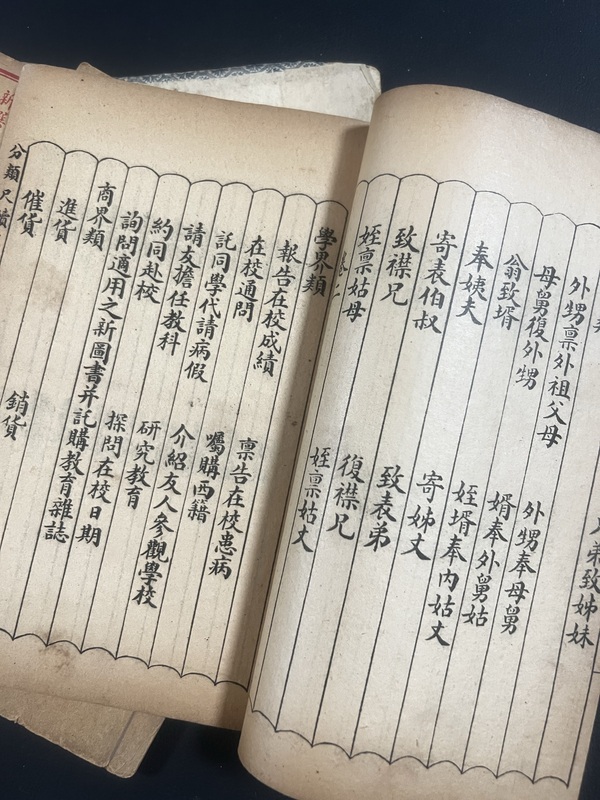 外甥禀外祖父母
母舅復外甥
外甥奉母舅
翁致壻
壻奉外舅姑
奉姨夫
姪壻奉內姑丈
寄表伯叔
寄姊丈
致襟兄
致表弟
姪禀姑母
復襟兄
姪禀姑丈
弟致姊妹
卷二
學界類
報告在校成績
禀告在校患病
在校通問
囑購西籍
託同學代請病假
介紹友人參觀學校
請友擔任教科
研究教育
約同赴校
探問在校日期
詢問適用之新圖書并託購教育雜誌
商界類
進貨
銷貨
催貨
分類尺牘
新撰